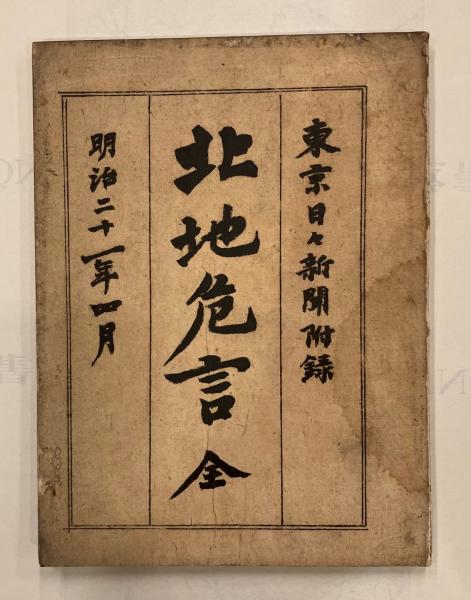 東京日々新聞附録
北地危言 全
明治二十一年四月